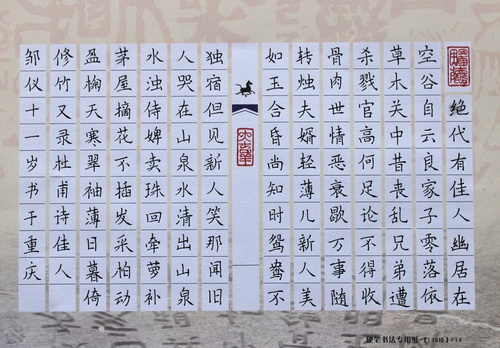 绝代有佳人幽居在
空谷自云良家子零落依
草木关中昔丧乱兄弟遭
杀戮官高何足论不得收
骨肉世情恶衰歇万事随
转烛夫婿轻薄儿新人美
如玉合昏尚知时鸳鸯不
独宿但见新人笑那闻旧
人哭在山泉水清出山泉
水浊侍婢卖珠回牵萝补
茅屋摘花不插发采柏动
盈掬天寒翠袖薄日暮倚
修竹又录杜甫诗佳人
邹仪十一岁书于重庆
硬笔书法专用纸